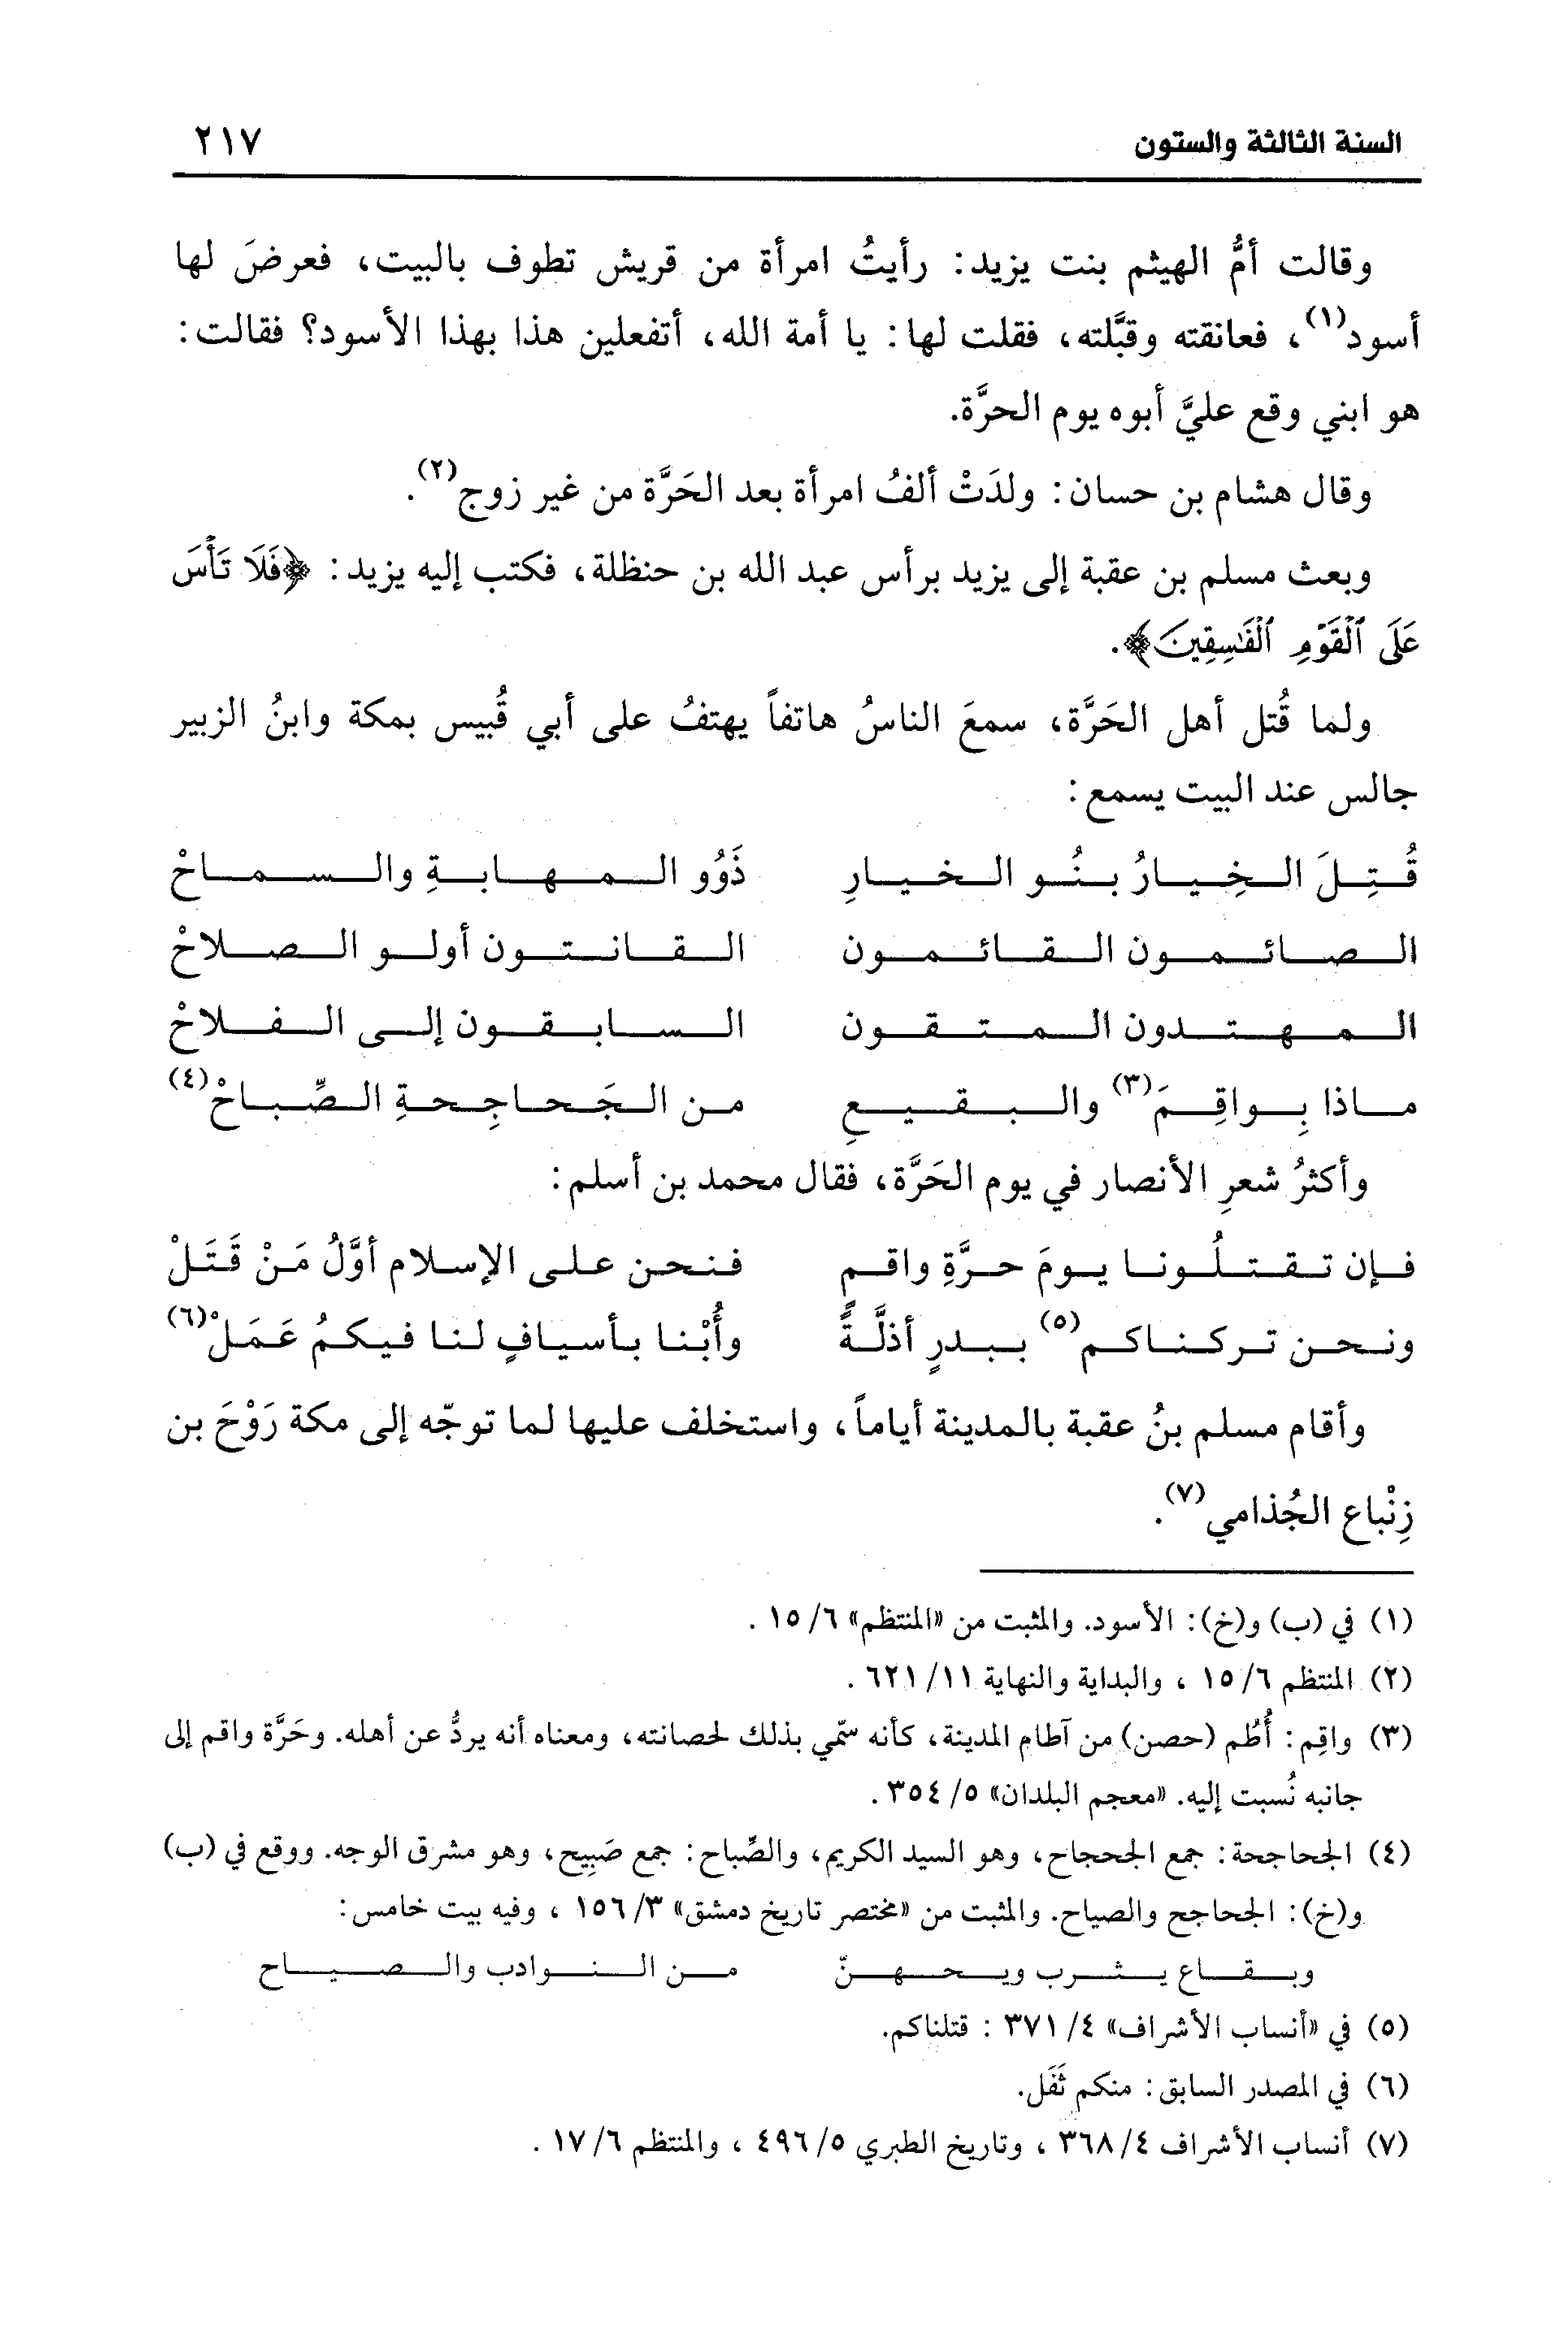 السنة الثالثة والستون ٢١٧
وقالت أمُّ الهيثم بنت يزيد: رأيتُ امرأة من قريش تطوف بالبيت، فعرضَ لها
أسود(١)، فعانقته وقبَّلته، فقلت لها: يا أمة الله، أتفعلين هذا بهذا الأسود؟ فقالت:
هو ابني وقع عليَّ أبوه يوم الحرَّة.
وقال هشام بن حسان: ولدَتْ ألفُ امرأة بعد الحَرَّة من غير زوج(٢).
وبعث مسلم بن عقبة إلى يزيد برأس عبد الله بن حنظلة، فكتب إليه يزيد: ﴿فَلَا تَأْسَ
عَلَى ٱلْقَوْمِ ٱلْفَٰسِقِينَ﴾.
ولما قُتل أهل الحَرَّة، سمعَ الناسُ هاتفاً يهتفُ على أبي قُبيس بمكة وابنُ الزبير
جالس عند البيت يسمع:
قُتِلَ الخِيارُ بنُو الخيارِ ذَوُو المهابةِ والسماحْ
الصائمون القائمون القانتون أولو الصلاحْ
المهتدون المتقون السابقون إلى الفلاحْ
ماذا بِواقِمَ(٣) والبقيعِ من الجَحاجِحةِ الصِّباحْ(٤)
وأكثرُ شعرِ الأنصار في يوم الحَرَّة، فقال محمد بن أسلم:
فإن تقتلُونا يومَ حرَّةِ واقمٍ فنحن على الإسلام أوَّلُ مَنْ قَتَلْ
ونحن تركناكم(٥) ببدرٍ أذلَّةً وأُبْنا بأسيافٍ لنا فيكمُ عَمَلْ(٦)
وأقام مسلم بنُ عقبة بالمدينة أياماً، واستخلف عليها لما توجّه إلى مكة رَوْحَ بن
زِنْباع الجُذامي(٧).
(١) في (ب) و(خ): الأسود. والمثبت من «المنتظم» ٦/ ١٥ .
(٢) المنتظم ٦/ ١٥ ، والبداية والنهاية ١١/ ٦٢١ .
(٣) واقِم: أُطُم (حصن) من آطام المدينة، كأنه سمّي بذلك لحصانته، ومعناه أنه يردُّ عن أهله. وحَرَّة واقم إلى
جانبه نُسبت إليه. «معجم البلدان» ٥/ ٣٥٤ .
(٤) الجحاجحة: جمع الجحجاح، وهو السيد الكريم، والصِّباح: جمع صَبِيح، وهو مشرق الوجه. ووقع في (ب)
و(خ): الجحاجح والصياح. والمثبت من «مختصر تاريخ دمشق» ٣/ ١٥٦ ، وفيه بيت خامس:
وبقاع يثرب ويحهنّ من النوادب والصياح
(٥) في «أنساب الأشراف» ٤/ ٣٧١ : قتلناكم.
(٦) في المصدر السابق: منكم ثَفَل.
(٧) أنساب الأشراف ٤/ ٣٦٨ ، وتاريخ الطبري ٥/ ٤٩٦ ، والمنتظم ٦/ ١٧ .